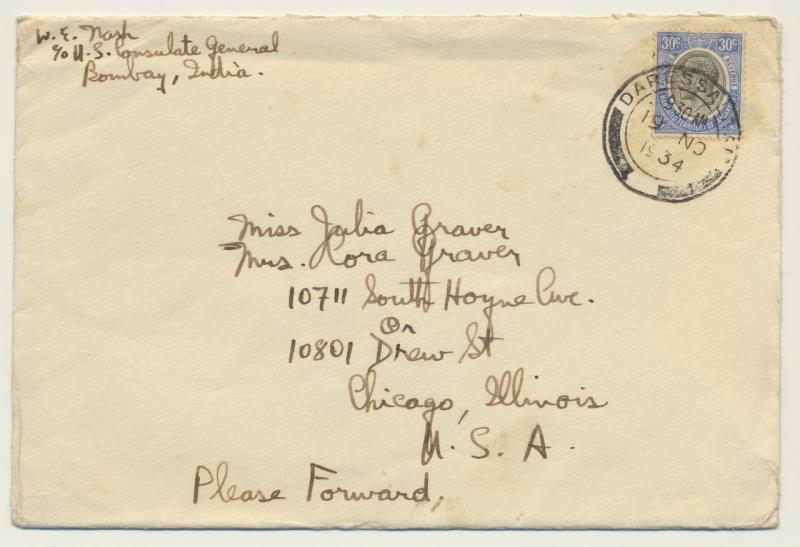 W. E. Nash
c/o U.S. Consulate General
Bombay, India.
30c 30c
DAR-ES-SALAAM
30 AM
19 NO
1934
1
Miss Julia Graver
Mrs. Cora Graver
10711 South Hoyne Ave.
Or
10801 Drew St
Chicago, Illinois
U. S. A.
Please Forward,